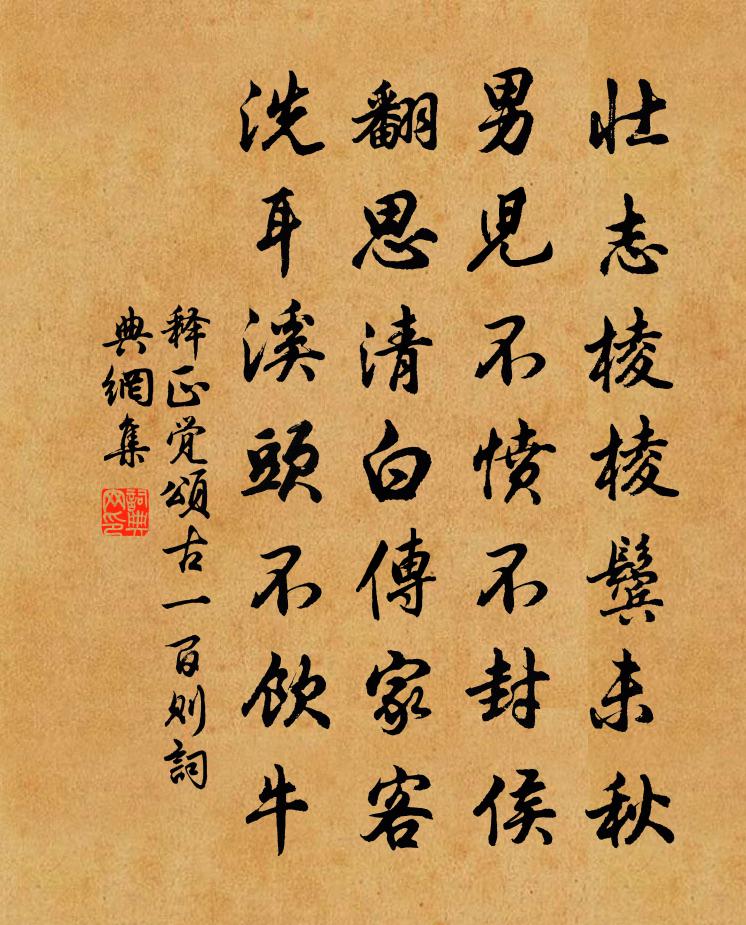 壮志棱棱鬓未秋
男児不愤不封侯
翻思清白傳家客
洗耳溪頭不飲牛
释正觉頌古一百则詞
典網集
詞典网印